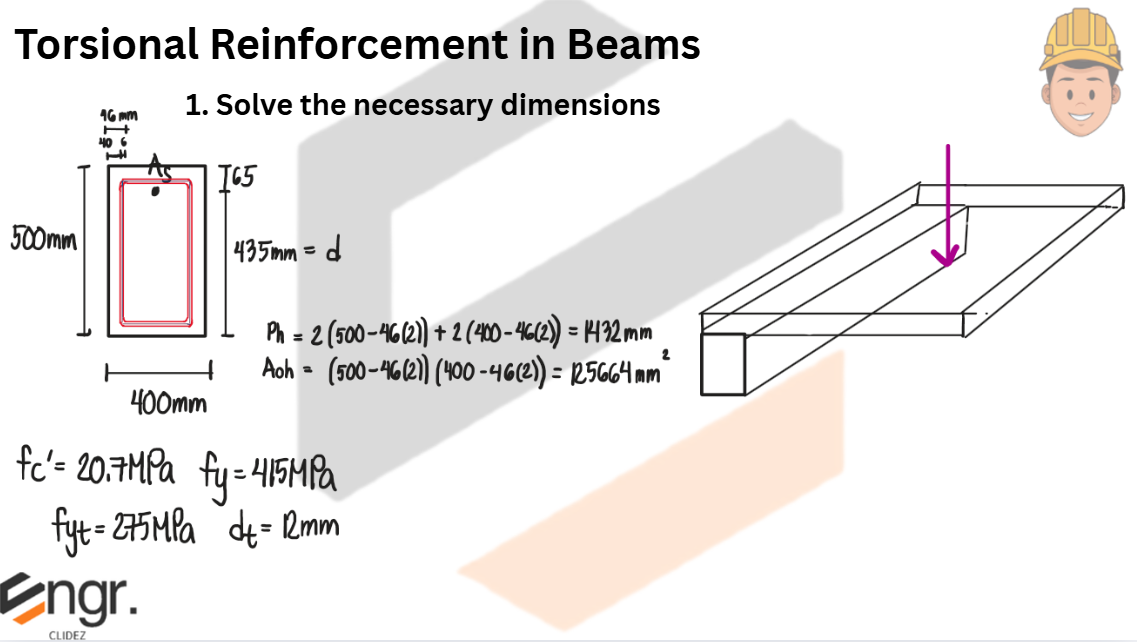 Torsional Reinforcement in Beams
1. Solve the necessary dimensions
46 mm
40 6
As
65
500mm
435mm = d
Ph = 2(500-46(2)) + 2(400-46(2)) = 1432mm
Aoh = (500-46(2))(400-46(2)) = 125664mm²
400mm
fc' = 20.7MPa fy = 415MPa
fyt = 275MPa dt = 12mm
Engr.
CLIDEZ